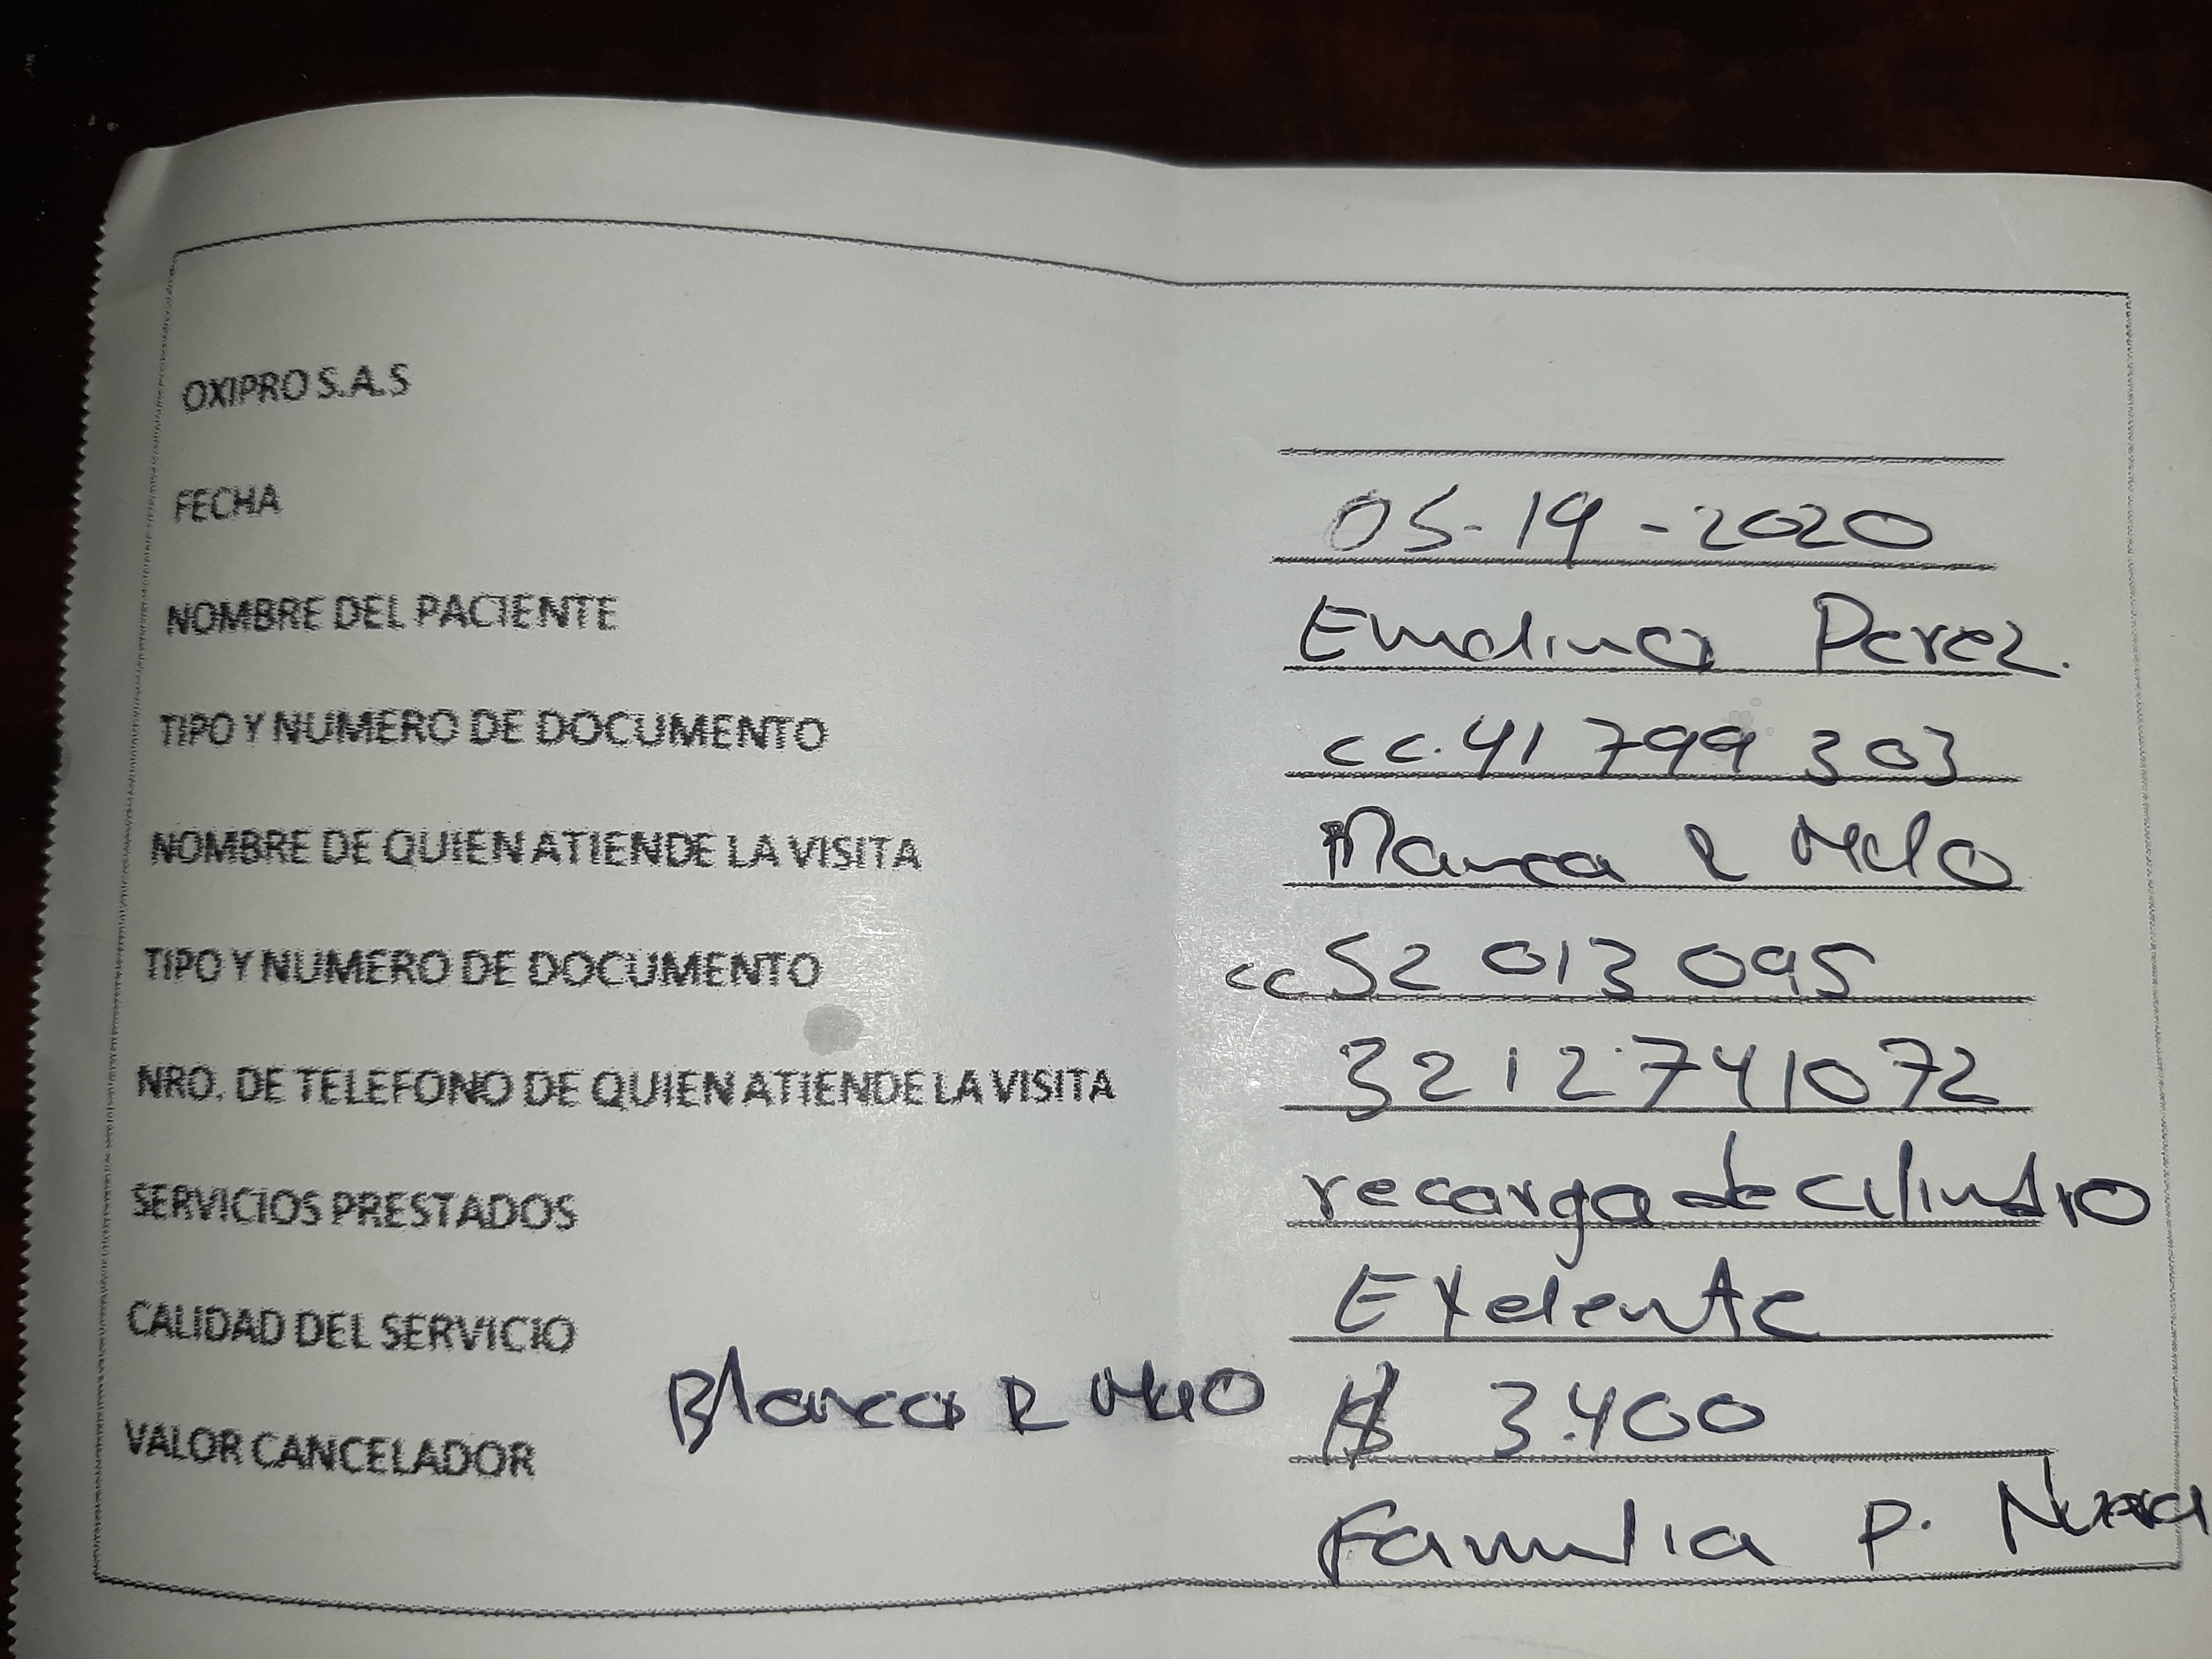 OXIPRO S.A.S
FECHA 05-19-2020
NOMBRE DEL PACIENTE Emelina Perez.
TIPO Y NUMERO DE DOCUMENTO cc.41 799 303
NOMBRE DE QUIEN ATIENDE LA VISITA R Melo
TIPO Y NUMERO DE DOCUMENTO cc 52 013 095
NRO. DE TELEFONO DE QUIEN ATIENDE LA VISITA 321 2741072
SERVICIOS PRESTADOS recarga de cilindro
CALIDAD DEL SERVICIO Exelente
VALOR CANCELADOR Blanca R Melo $ 3.400
Familia P.